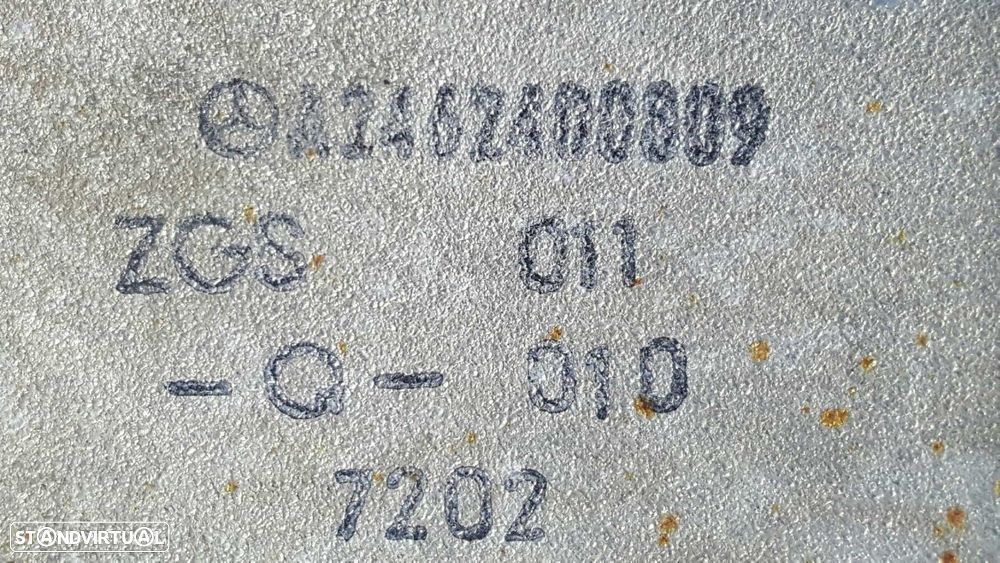 A2462400809
ZGS 011
-Q- 010
7202
STANDVIRTUAL